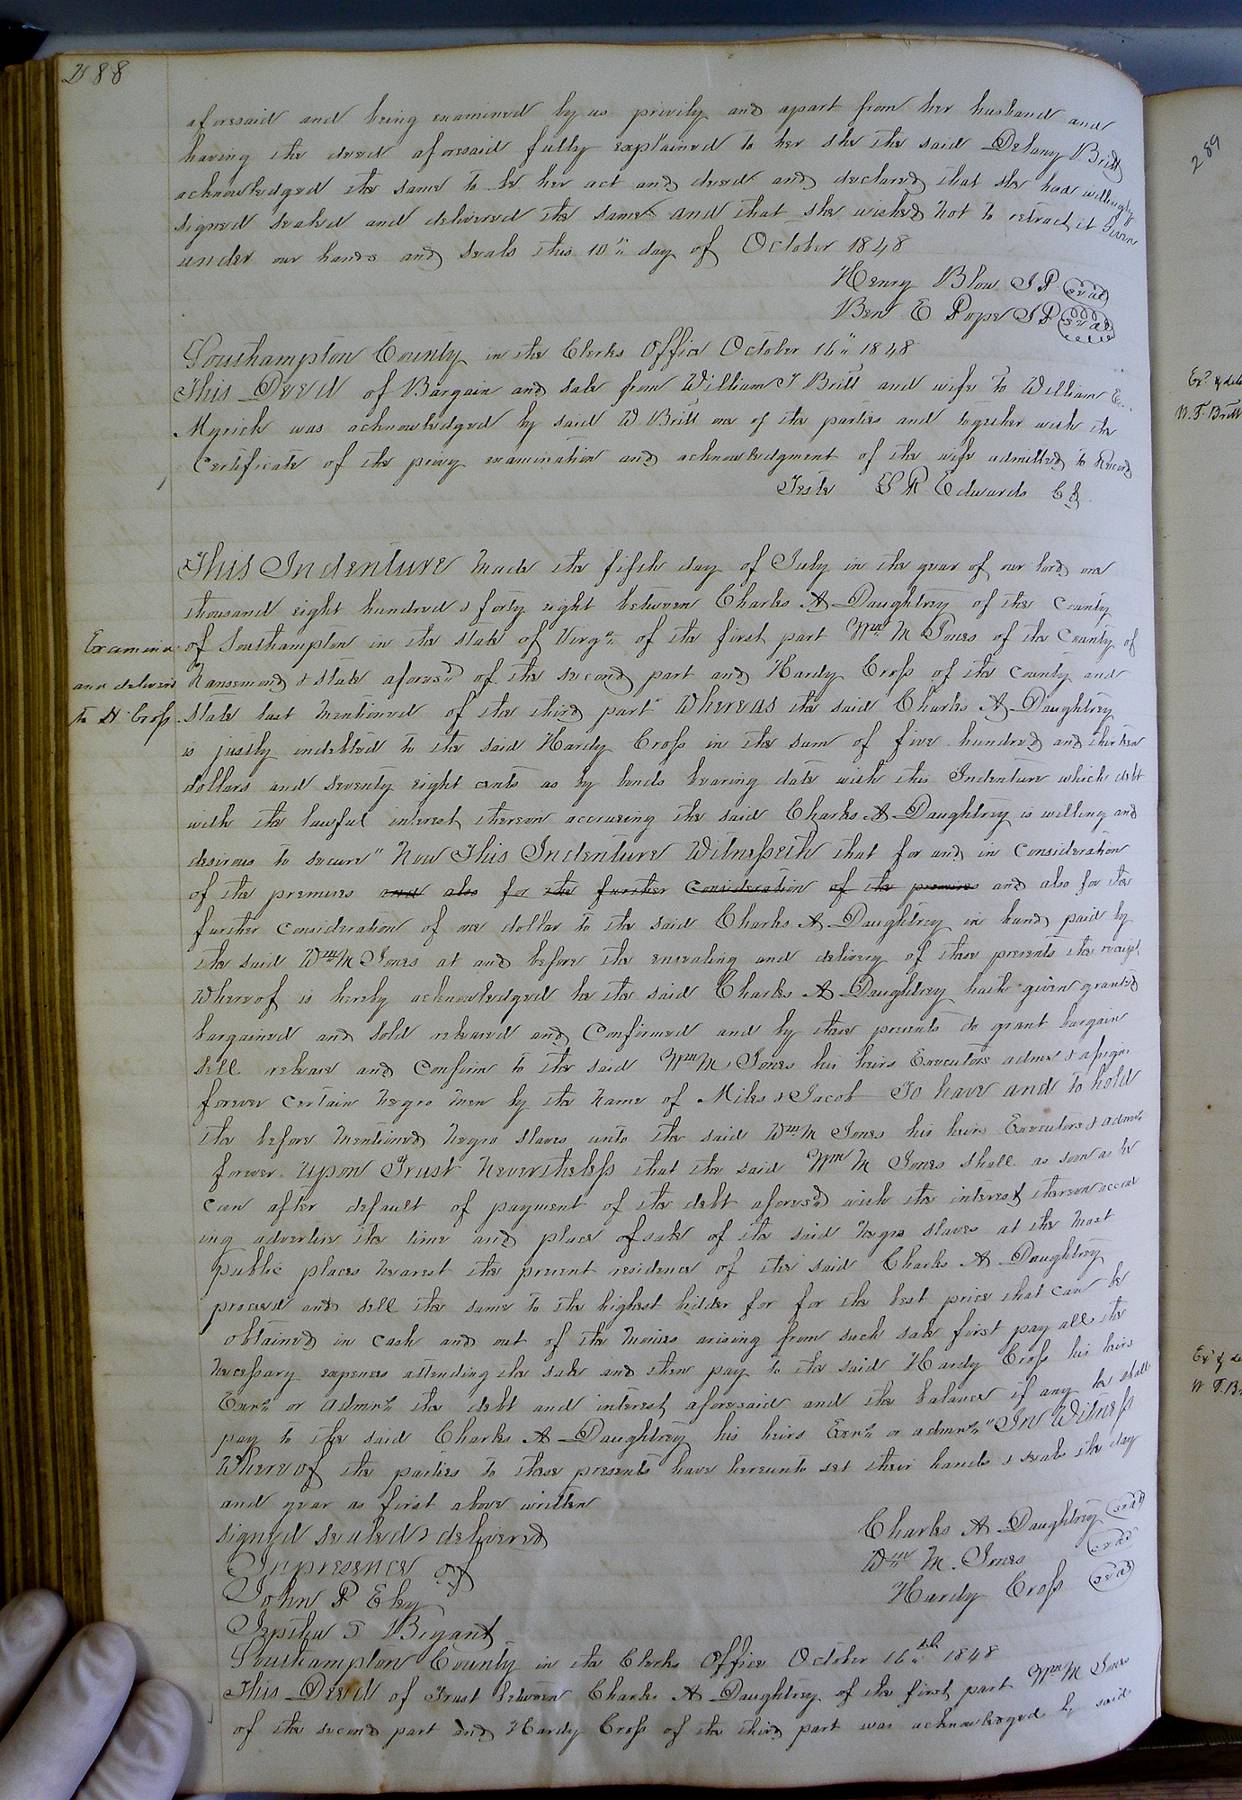 288
aforesaid and being examined by us privily and apart from her husband and
having the deed aforesaid fully explained to her she the said Delany Britt
acknowledged the same to be her act and deed and declared that she had willingly
signed sealed and delivered the same and that she wished not to retract it Given
under our hands and seals this 10th day of October 1848
Henry Blow J P seal
Ben E Pope J P seal
Southampton County in the Clerks Office October 16" 1848
This Deed of Bargain and sale from William T Britt and wife to William E.
Myrick was acknowledged by said W Britt one of the parties and together with the
Certificate of the privy examination and acknowledgment of the wife admitted to Record
Teste L R Edwards Clk
This Indenture Made the fifth day of July in the year of our lord one
thousand eight hundred & forty eight between Charles A Daughtrey of the County
of Southampton in the state of Virga. of the first part Wm M Jones of the County of
Nansemond & State aforesd of the second part and Hardy Cross of the County and
State last Mentioned of the third part Whereas the said Charles A Daughtrey
is justly indebted to the said Hardy Cross in the sum of five hundred and thirteen
dollars and seventy eight cents as by bonds bearing date with this Indenture which debt
with the lawful interest thereon accruing the said Charles A Daughtrey is willing and
desirous to secure" Now This Indenture Witnesseth that for and in Consideration
of the premises and also for the further Consideration of the premises and also for the
further Consideration of one dollar to the said Charles A Daughtrey in hand paid by
the said Wm M Jones at and before the ensealing and delivery of these presents the receipt
Whereof is hereby acknowledged he the said Charles A Daughtrey hath given granted
bargained and sold released and Confirmed and by these presents do grant bargain
Sell release and Confirm to the said Wm M Jones his heirs Executors admrs & assigns
forever Certain Negro Men by the Name of Miles & Jacob To have and to hold
the before Mentioned Negro slaves unto the said Wm M Jones his heirs Executors & admrs
forever Upon Trust Nevertheless that the said Wm M Jones shall as soon as he
can after default of payment of the debt aforesd with the interest thereon accru
ing advertise the time and place of sale of the said Negro slaves at the Most
public places Nearest the present residence of the said Charles A Daughtrey
proceed and sell the same to the highest bidder for for the best price that can be
obtained in cash and out of the Monies arising from such sale first pay all the
Necessary expenses attending the sale and then pay to the said Hardy Cross his heirs
Exors or admrs the debt and interest aforesaid and the balance if any he shall
pay to the said Charles A Daughtrey his heirs Exors or admrs" In Witness
Whereof the parties to these presents have hereunto set their hands & seals the day
and year as first above written
signed sealed & delivered
In presence of
John P Eley
Jeptha T Bryant
Charles A Daughtrey seal
Wm M. Jones seal
Hardy Cross seal
Southampton County in the Clerks Office October 16th 1848
This Deed of Trust between Charles A Daughtrey of the first part Wm M Jones
of the second part and Hardy Cross of the third part was acknowledged by said
Examined
and delivered
to H Cross
289
Exd & del
W. T. Britt
Exd & de
W T. B